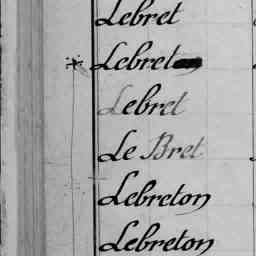 Lebret
Lebret
Lebret
Le Bret
Lebreton
Lebreton